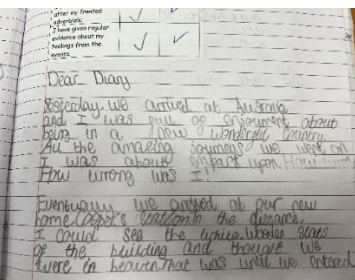 after my fronted
adverbials.
I have given regular
evidence about my
feelings from the
events.
Dear Diary
Yesterday, we arrived at Australia
and I was full of enjoyment about
being in a new wonderful country.
All the amazing journeys we went on
I was about embark upon. How wrong
How wrong was I!
Eventually we arrived at our new
home. Station in the distance,
I could see the white wooden slats
of the building and thought we
were in heaven. That was until we entered